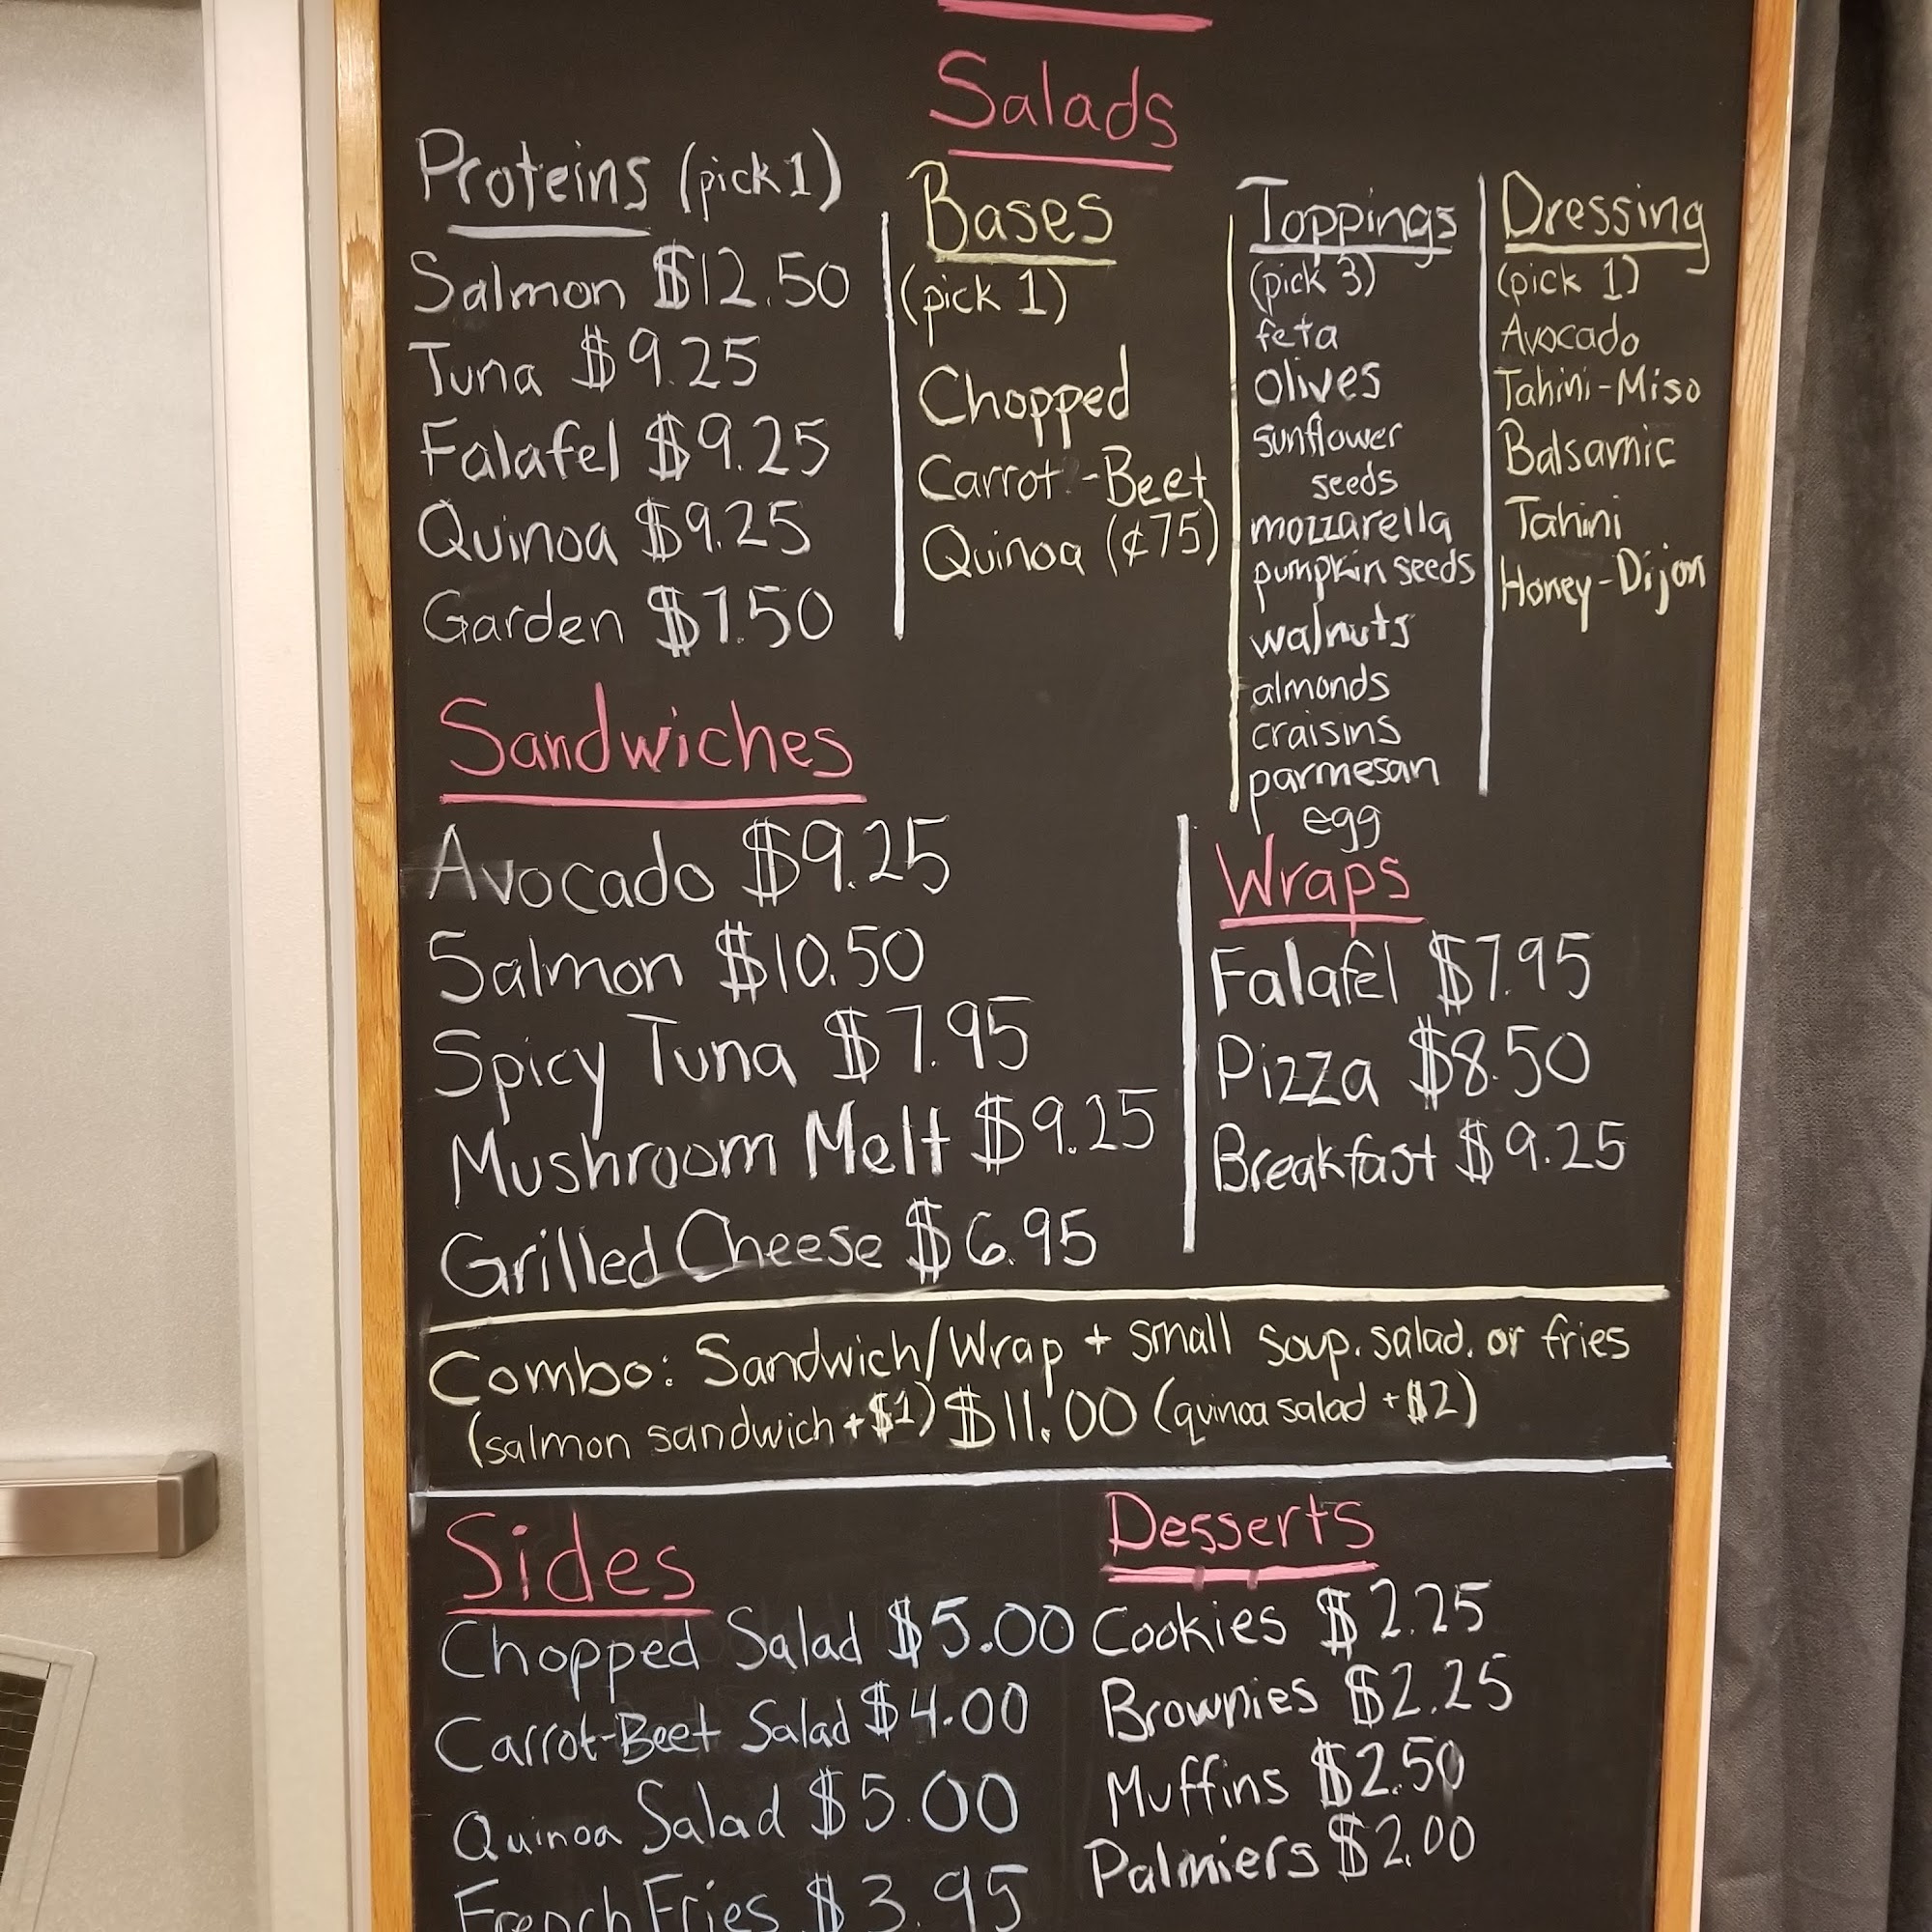 Salads
Proteins (pick 1)
Salmon $12.50
Tuna $9.25
Falafel $9.25
Quinoa $9.25
Garden $7.50
Bases
(pick 1)
Chopped
Carrot-Beet
Quinoa (¢75)
Toppings
(pick 3)
feta
olives
sunflower
seeds
mozzarella
pumpkin seeds
walnuts
almonds
craisins
parmesan
egg
Dressing
(pick 1)
Avocado
Tahini-Miso
Balsamic
Tahini
Honey-Dijon
Sandwiches
Avocado $9.25
Salmon $10.50
Spicy Tuna $7.95
Mushroom Melt $9.25
Grilled Cheese $6.95
Wraps
Falafel $7.95
Pizza $8.50
Breakfast $9.25
Combo: Sandwich/Wrap + small soup, salad, or fries
(salmon sandwich +$1) $11.00 (quinoa salad +$2)
Sides
Chopped Salad $5.00
Carrot-Beet Salad $4.00
Quinoa Salad $5.00
French Fries $3.95
Desserts
Cookies $2.25
Brownies $2.25
Muffins $2.50
Palmiers $2.00